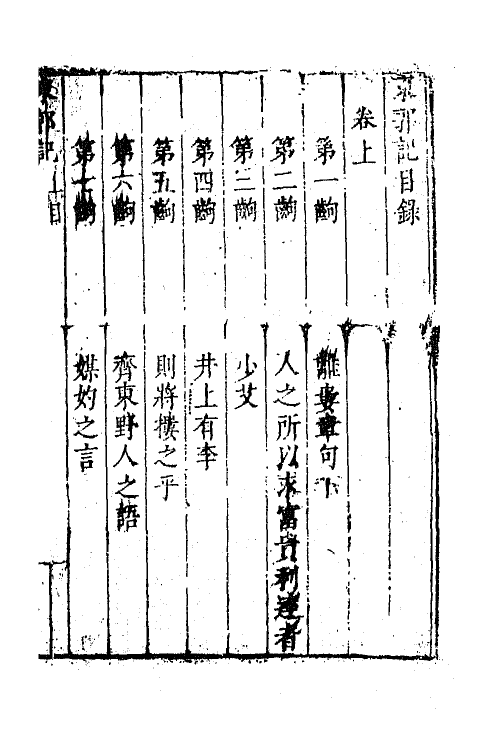 東郭記目錄
卷上
第一齣 離婁章句下
第二齣 人之所以求富貴利達者
第三齣 少艾
第四齣 井上有李
第五齣 則將摟之乎
第六齣 齊東野人之語
第七齣 媒妁之言
東郭記 上目